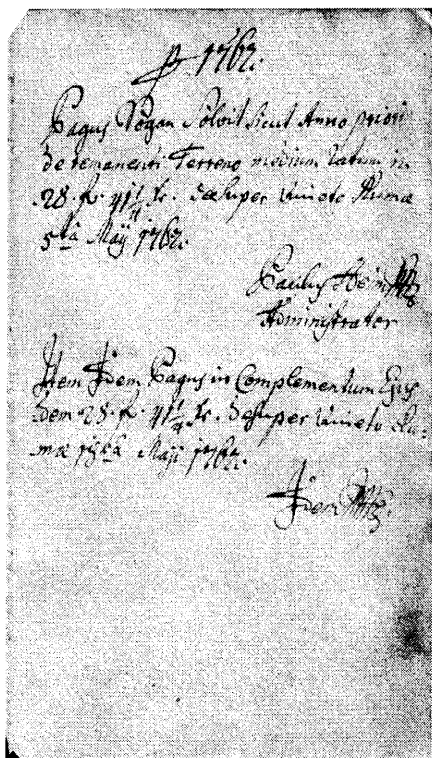 P. 1762.
Pagus Pogan Solvit sicut Anno priori
de remanenti Terreno mediam ratam in
28. fr. 41 1/4 Xr. desuper quieto Rumæ
5ta Maij 1762.
Administrator
Item Idem Pagus in Complementum Ejus
dem 28. fr. 41 1/4 Xr. desuper quieto Ru:
mæ Maij 1762.
Idem